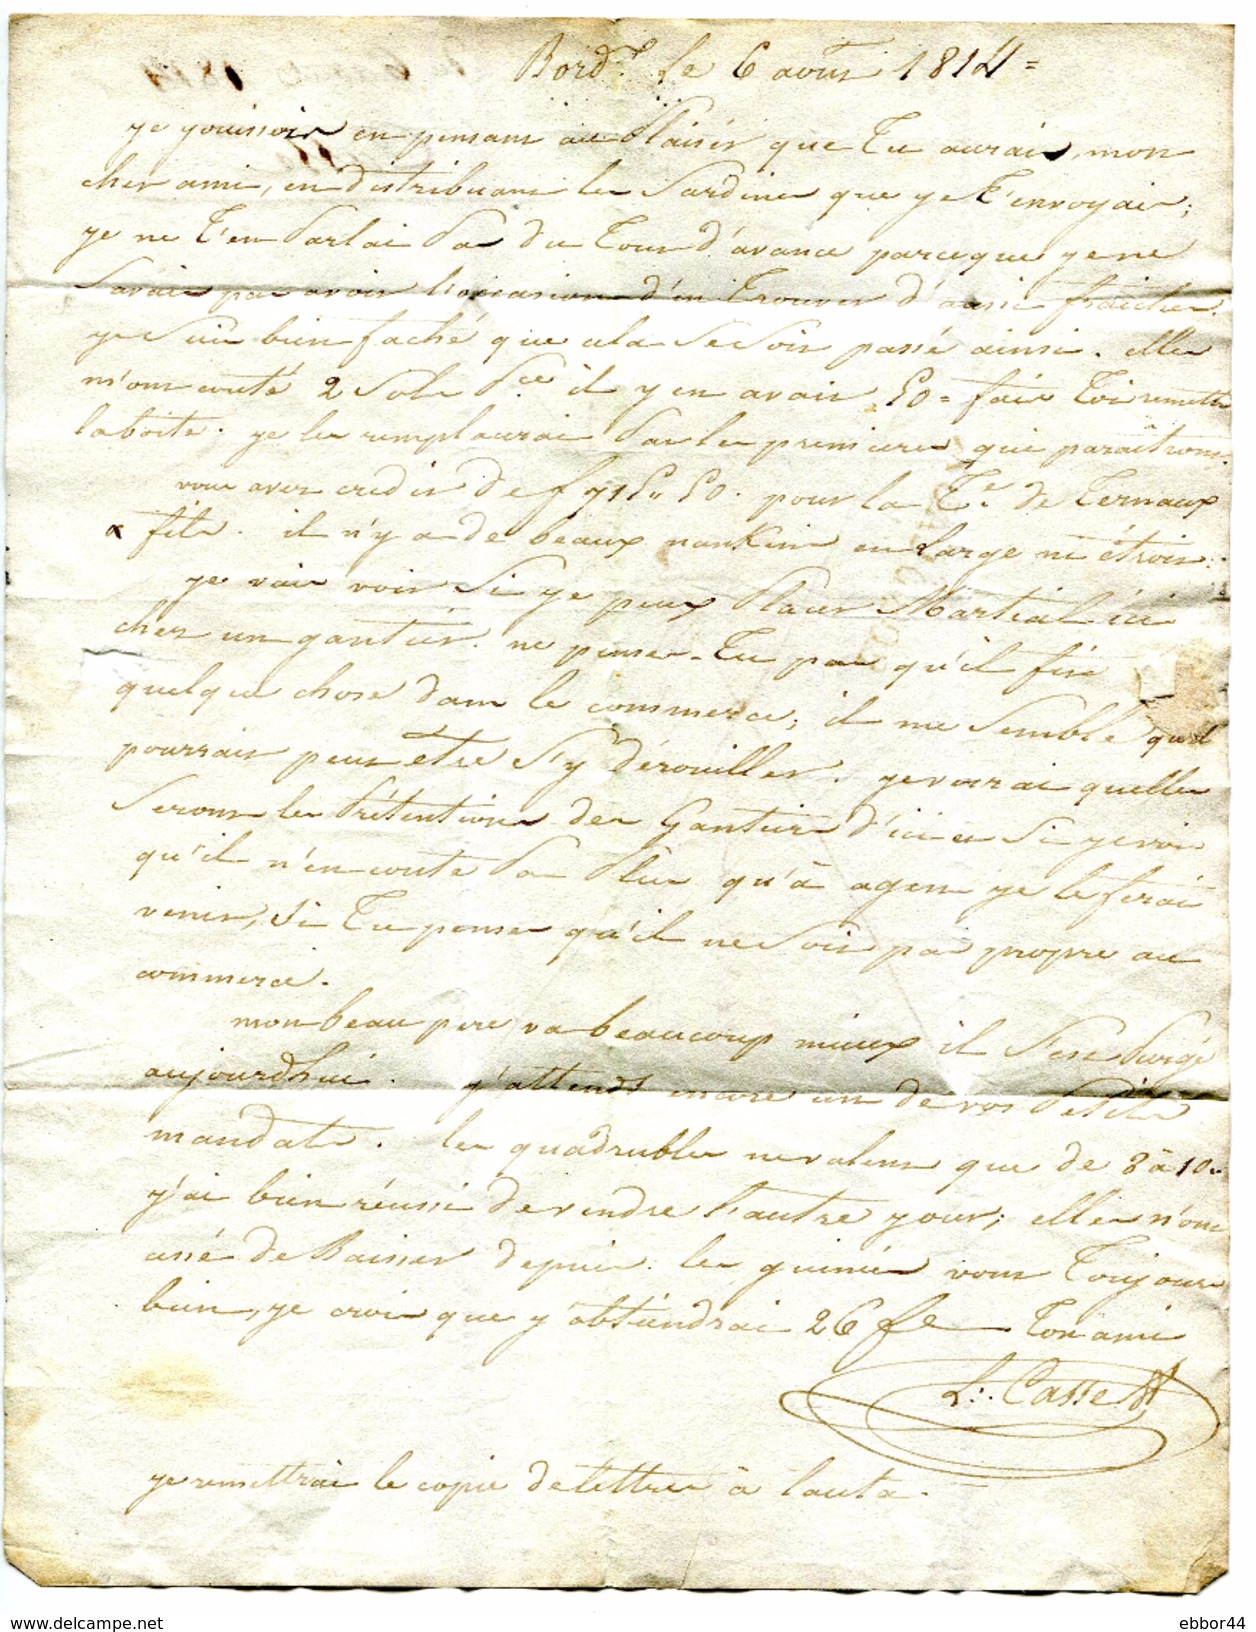 Bord.x le 6 aout 1814 =
je jouissois en pensant au plaisir que tu aurais, mon
cher ami, en distribuant les Sardines que je t'envoyais;
je ne t'en parlai pas du tour d'avance parceque je ne
savais pas avoir l'occasion d'en trouver d'aussi fraiches.
je suis bien faché que cela se soit passé ainsi. elles
m'ont couté 2 Sols p.ce il y en avait 50 = fais toi remettre
la boite. je les remplacerai par les premieres qui paraîtront.
vous avez credit de f 515,, 50. pour la T.e de Ternaux
& fils. il n'y a de beaux nankins en large ni étroit.
je vais voir si je peux placer Martial ici
chez un gantier. ne penses-tu pas qu'il fit
quelque chose dans le commerce, il me semble qu'il
pourrait peut etre s'y dérouiller. je verrai quelles
seront les prétentions des Gantiers d'ici et si je vois
qu'il n'en coute pas plus qu'à agen je le ferai
venir, si tu penses qu'il ne soit pas propre au
commerce.
mon beau pere va beaucoup mieux il s'est purgé
aujourdhui. j'attends encore un de vos petits
mandats. les quadrubles ne valent que de 8 à 10
j'ai bien réussi de vendre l'autre jour; elles n'ont
cessé de Baisser depuis. les guinées vont toujours
bien, je crois que j'obtiendrai 26 f Ton ami
L. Cassett
je remettrai le copie de lettres à lauta.
ebbor44